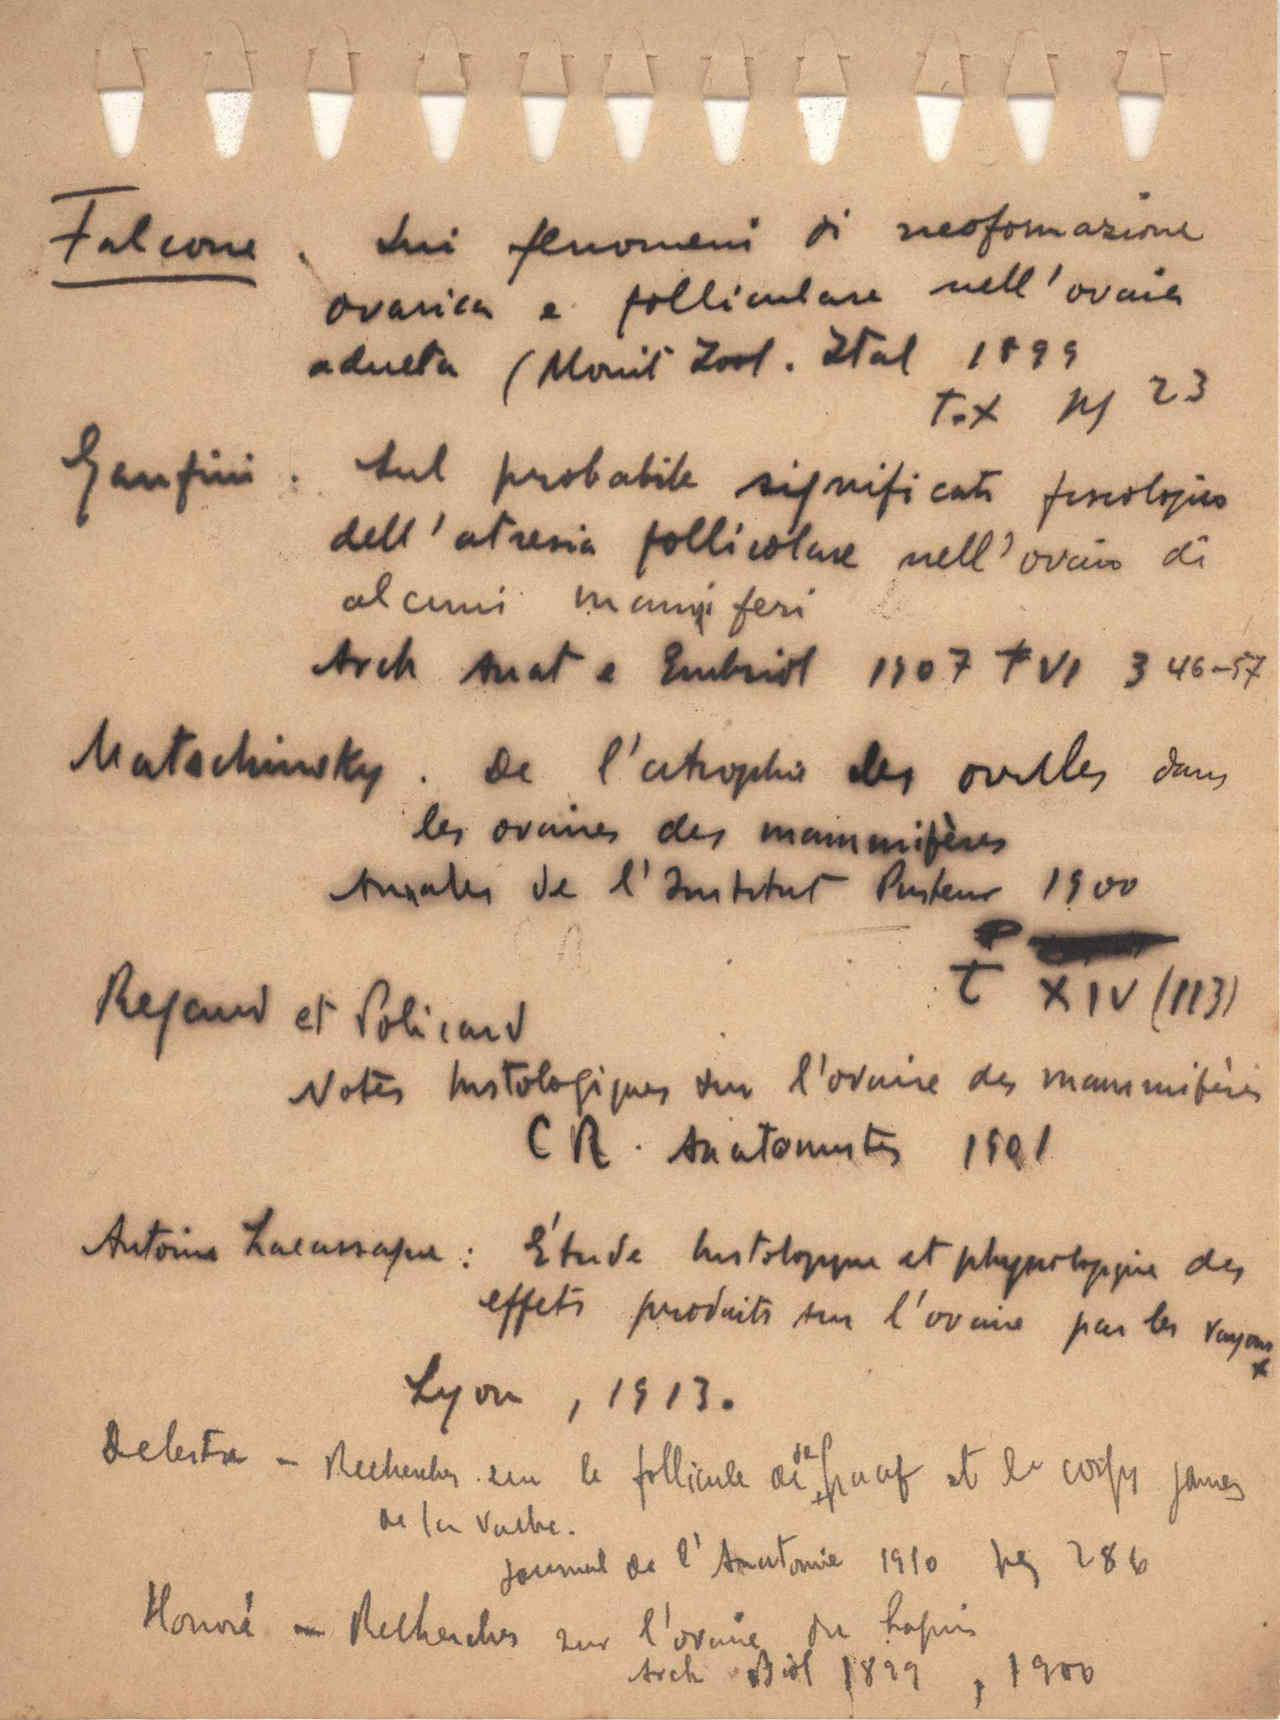 Falcone. Sui fenomeni di neoformazione
ovarica e folliculare nell'ovaia
adulta (Monit Zool. Ital 1899
T.X pg 23
Ganfini. Sul probabile significato fisiologico
dell'atresia follicolare nell'ovaio di
alcuni mammiferi
Arch Anat e Embriol 1907 t VI 346-57
Matschinsky. De l'atrophie des ovules dans
les ovaires des mammifères
Annales de l'Institut Pasteur 1900
t XIV (113)
Regaud et Policard
Notes histologiques sur l'ovaire des mammifères
CR. Anatomistes 1901
Antoine Lacassagne: Étude histologique et physiologique des
effets produits sur l'ovaire par les rayons
X
Lyon, 1913.
Delestre - Recherches sur le follicule de de Graaf et le corps jaunes
de la vache.
Journal de l'Anatomie 1910 pg 286
Honoré - Recherches sur l'ovaire du Lapin
Arch Biol 1899, 1900